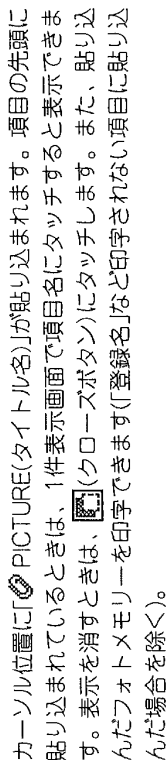 カーソル位置に「 PICTURE(タイトル名)」が貼り込まれます。項目の先頭に
貼り込まれているときは、1件表示画面で項目名にタッチすると表示できま
す。表示を消すときは、(クローズボタン)にタッチします。また、貼り込
んだフォトメモリーを印字できます(「登録名」など印字されない項目に貼り込
んだ場合を除く)。